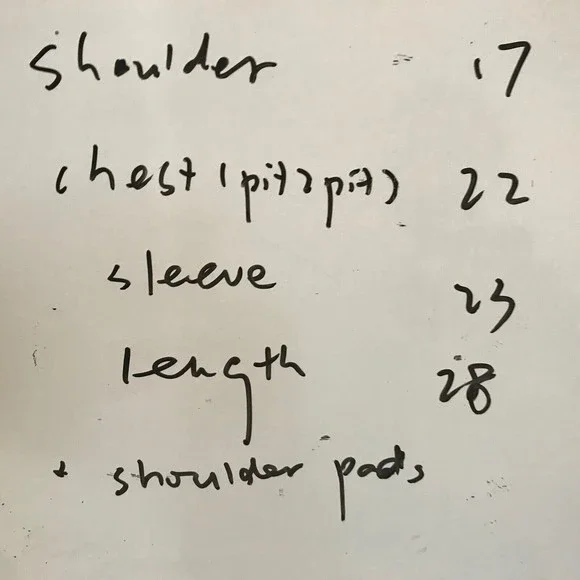 shoulder 17
chest (pit 2 pit) 22
sleeve 23
length 28
+ shoulder pads